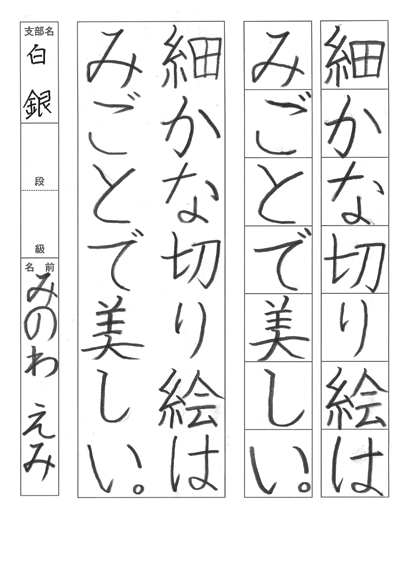 細かな切り絵は
みごとで美しい。
細かな切り絵は
みごとで美しい。
支部名
白銀
段
級
名前
みのわ えみ